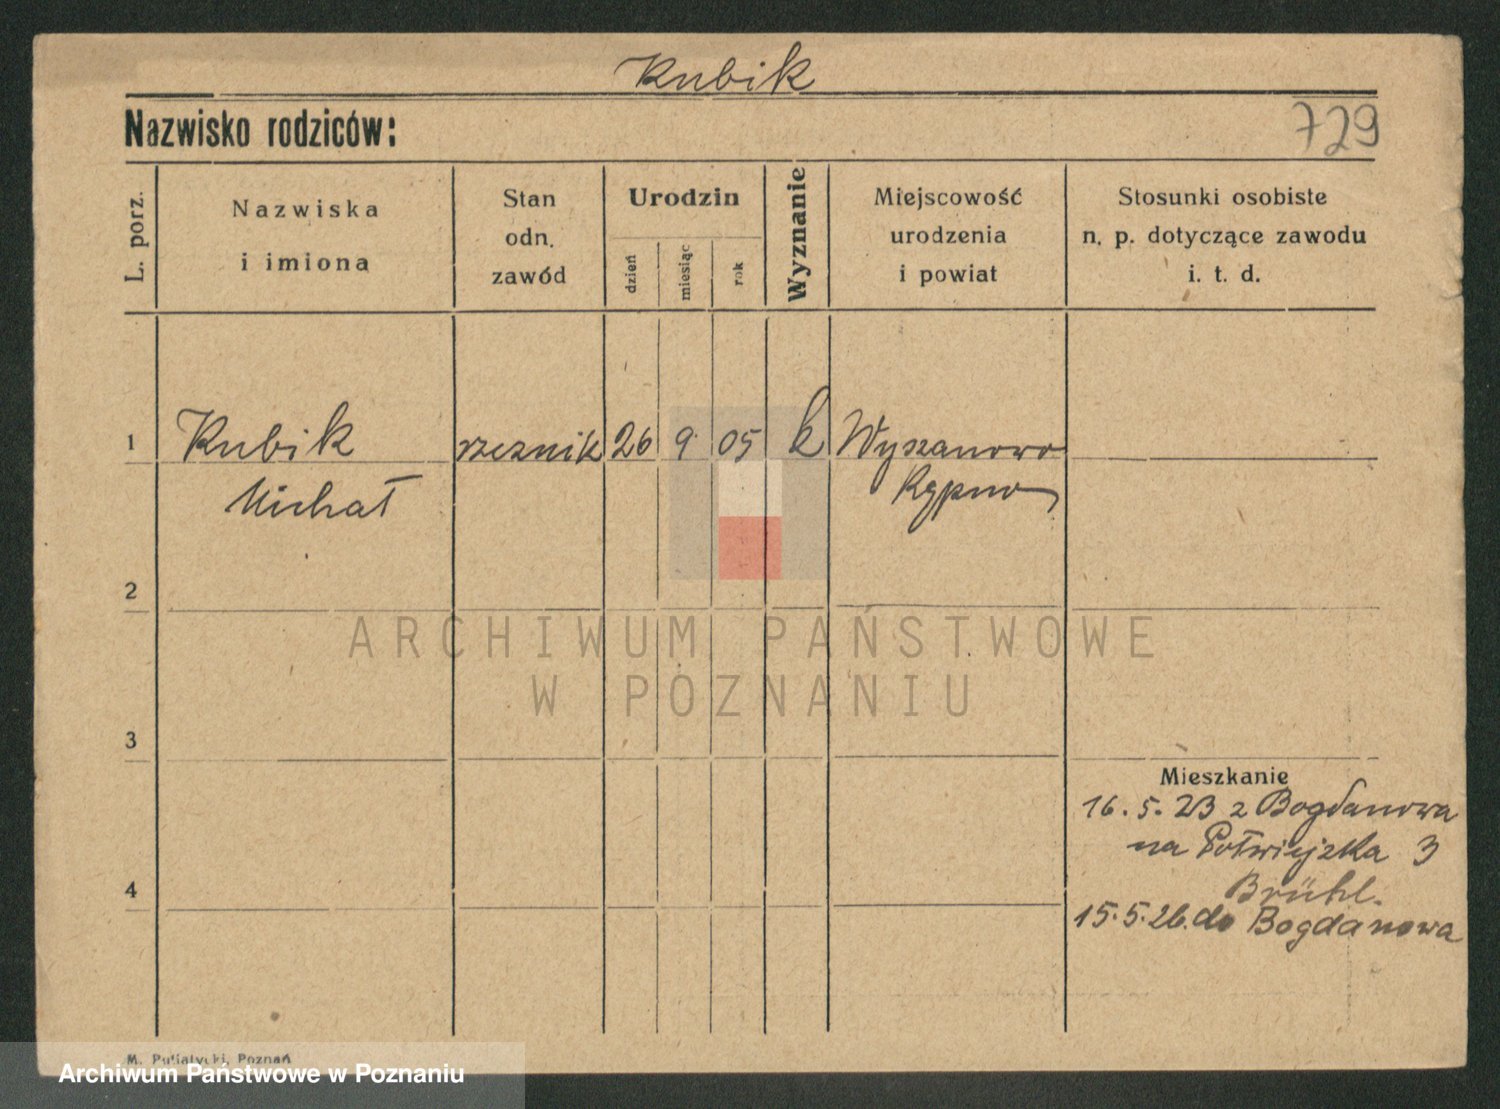 Kubik
Nazwisko rodziców:
729
L. porz.
Nazwiska
i imiona
Stan
odn.
zawód
Urodzin
dzień
miesiąc
rok
Wyznanie
Miejscowość
urodzenia
i powiat
Stosunki osobiste
n. p. dotyczące zawodu
i. t. d.
1
Kubik
rzeznik
26
9
05
k
Wyszanowo
Kępno
Michał
2
ARCHIWUM PAŃSTWOWE
W POZNANIU
3
Mieszkanie
16. 5. 23 z Bogdanowa
na Półwiejzka 3
4
Brühl.
15. 5. 26. do Bogdanowa
M. Putiatycki, Poznań
Archiwum Państwowe w Poznaniu